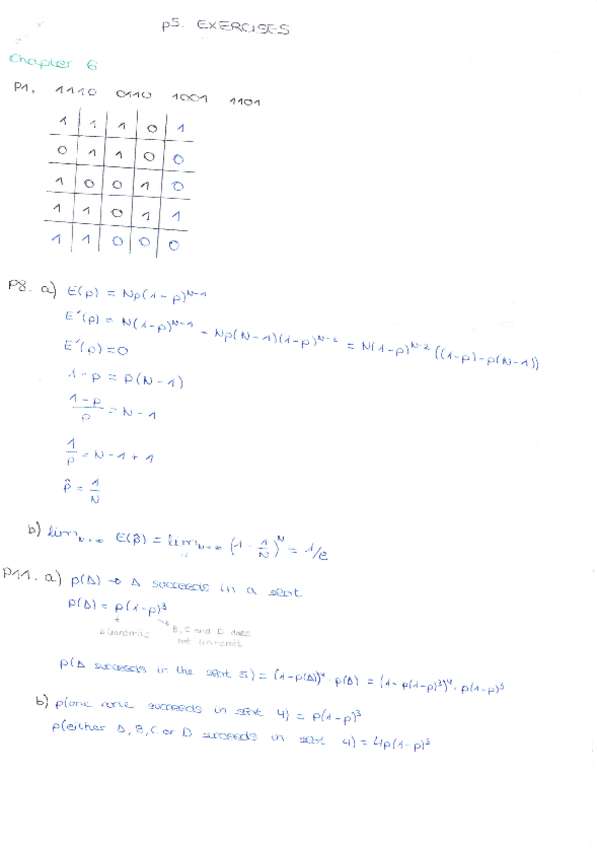 p5. EXERCISES
Chapter 6
P1. 1110 0110 1001 1101
1 1 1 0 1
0 1 1 0 0
1 0 0 1 0
1 1 0 1 1
1 1 0 0 0
P8. a) E(p) = Np(1-p)^{N-1}
E'(p) = N(1-p)^{N-1} - Np(N-1)(1-p)^{N-2} = N(1-p)^{N-2} ((1-p)-p(N-1))
E'(p)=0
1-p = p(N-1)
(1-p)/p = N-1
1/p = N-1+1
p̂ = 1/N
b) lim_{N→∞} E(p̂) = lim_{N→∞} (1 - 1/N)^N = 1/e
P11. a) p(A) → A succeeds in a slot
p(A) = p(1-p)^3
a transmits B, C and D does
not transmit
p(A succeeds in the slot 5) = (1-p(A))^4 · p(A) = (1-p(1-p)^3)^4 · p(1-p)^3
b) p(one node succeeds in slot 4) = p(1-p)^3
p(either A, B, C or D succeeds in slot 4) = 4p(1-p)^3